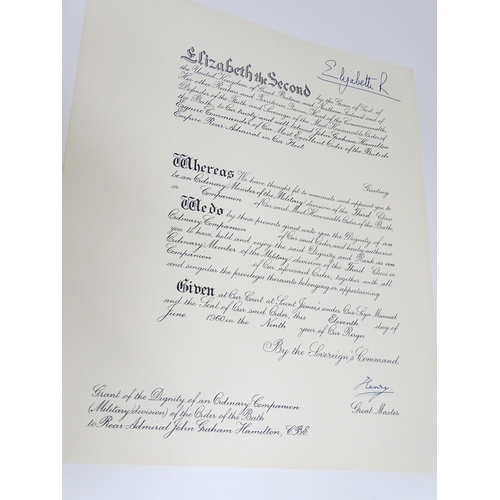 Elizabeth R
Elizabeth the Second by the Grace of God, of
the United Kingdom of Great Britain and Northern Ireland and of
Her other Realms and Territories Queen, Head of the Commonwealth,
Defender of the Faith and Sovereign of the Most Honourable Order of
the Bath, to Our trusty and well beloved John Graham Hamilton
Esquire Commander of Our Most Excellent Order of the British
Empire Rear-Admiral in Our Fleet
Greeting
Whereas We have thought fit to nominate and appoint you to
be an Ordinary Member of the Military division of the Third Class
or Companion of Our said Most Honourable Order of the Bath,
We do by these presents grant unto you the Dignity of an
Ordinary Companion of Our said Order, and hereby authorise
you to have, hold and enjoy the said Dignity and Rank as an
Ordinary Member of the Military division of the Third Class or
Companion of Our aforesaid Order, together with all
and singular the privileges thereunto belonging or appertaining
Given at Our Court at Saint James's under Our Sign Manual
and the Seal of Our said Order, this Eleventh day of
June 1960 in the Ninth year of Our Reign
By the Sovereign's Command
Henry
Great Master
Grant of the Dignity of an Ordinary Companion
(Military division) of the Order of the Bath
to Rear-Admiral John Graham Hamilton, C.B.E.